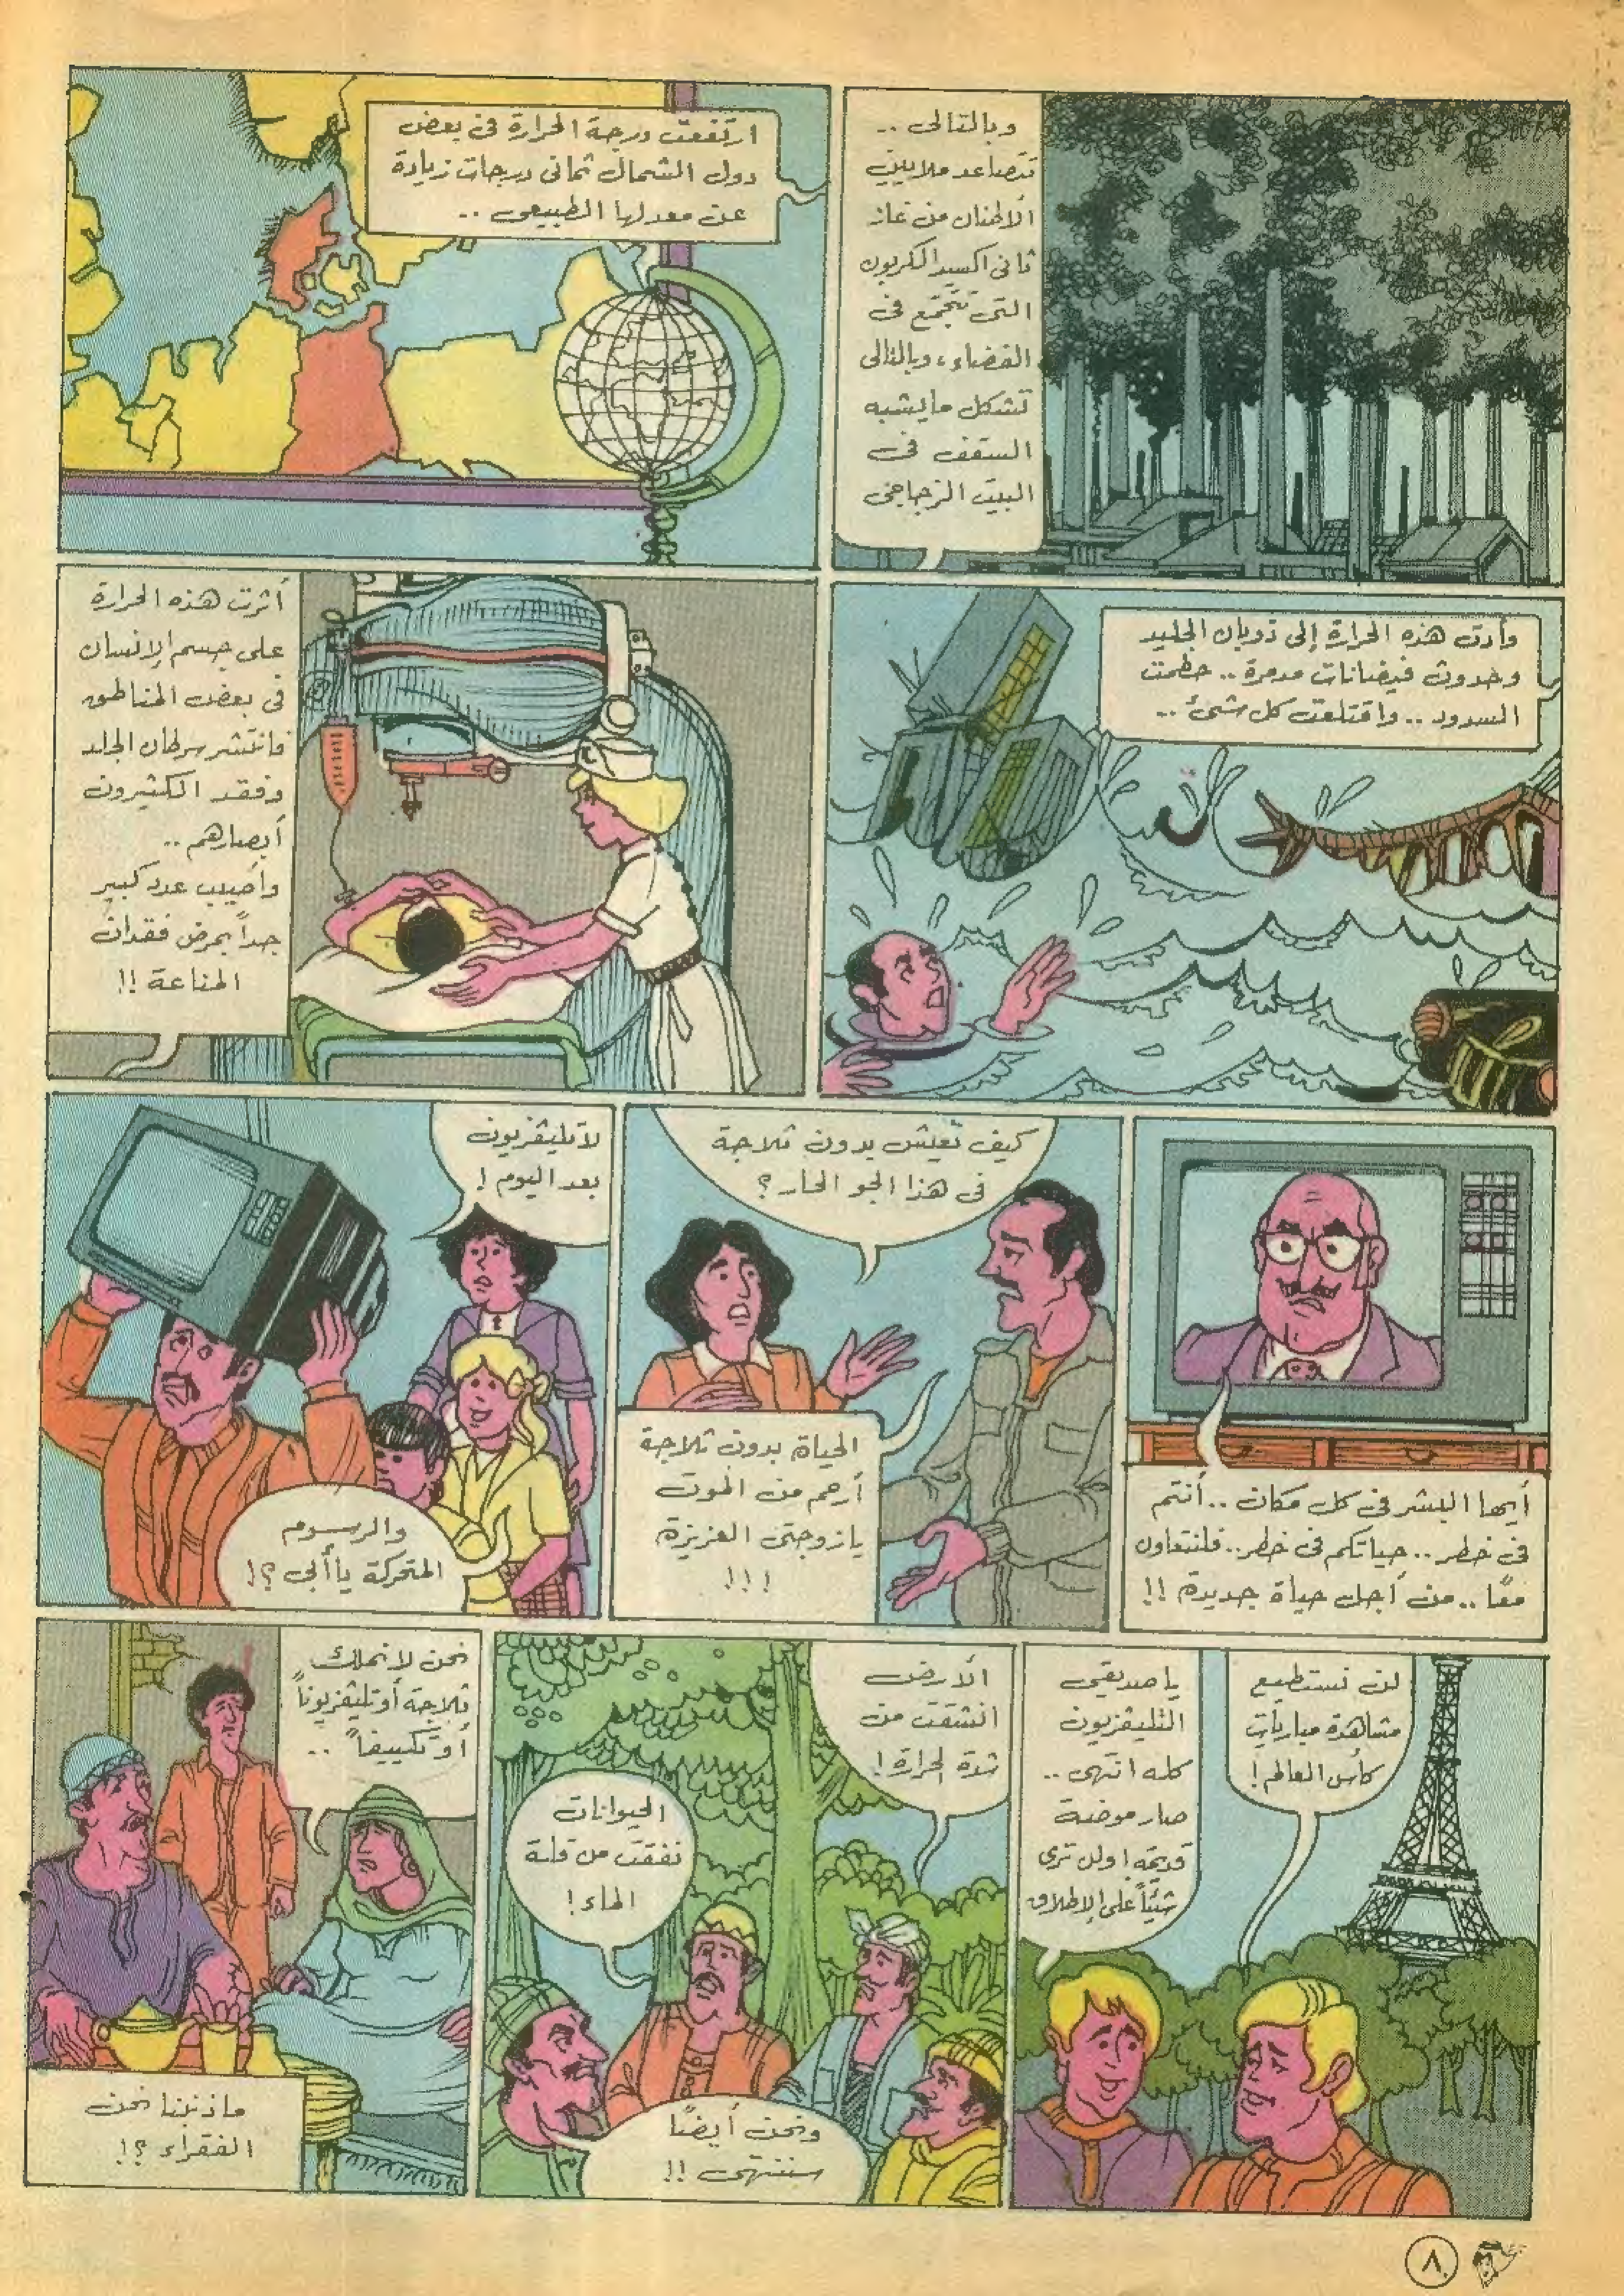 وبالتالى ..
تتصاعد ملايين
الأطنان من غاز
ثانى اكسيد الكربون
التى تتجمع فى
الفضاء، وبالتالى
تشكل مايشبه
السقف فى
البيت الزجاجى
ارتفعت درجة الحرارة فى بعض
دول الشمال ثمانى درجات زيادة
عن معدلها الطبيعى ..
وأدت هذه الحرارة إلى ذوبان الجليد
وحدوث فيضانات مدمرة .. حطمت
السدود .. واقتلعت كل شىء ..
أثرت هذه الحرارة
على جسم الإنسان
فى بعض المناطق
فانتشر سرطان الجلد
وفقد الكثيرون
أبصارهم ..
وأصيب عدد كبير
جداً بمرض فقدان
المناعة !!
أيها البشر فى كل مكان .. أنتم
فى خطر .. حياتكم فى خطر .. فلنتعاون
معًا .. من أجل حياة جديدة !!
كيف تعيش بدون ثلاجة
فى هذا الجو الحار ؟
الحياة بدون ثلاجة
أرحم من الموت
يازوجتى العزيزة
!!!
لاتليفزيون
بعد اليوم !
والرسوم
المتحركة يا أبى ؟!
لن نستطيع
مشاهدة مباريات
كأس العالم !
ياصديقى
التليفزيون
كله انتهى ..
صار موضة
قديمة ! ولن ترى
شيئاً على الإطلاق
الأرض
انشقت من
شدة الحرارة !
الحيوانات
نفقت من قلة
الماء !
ونحن أيضًا
سننتهى !!
نحن لانملك
ثلاجة أوتليفزيوناً
أوتكييفاً ..
ماذنبنا نحن
الفقراء ؟!
٨